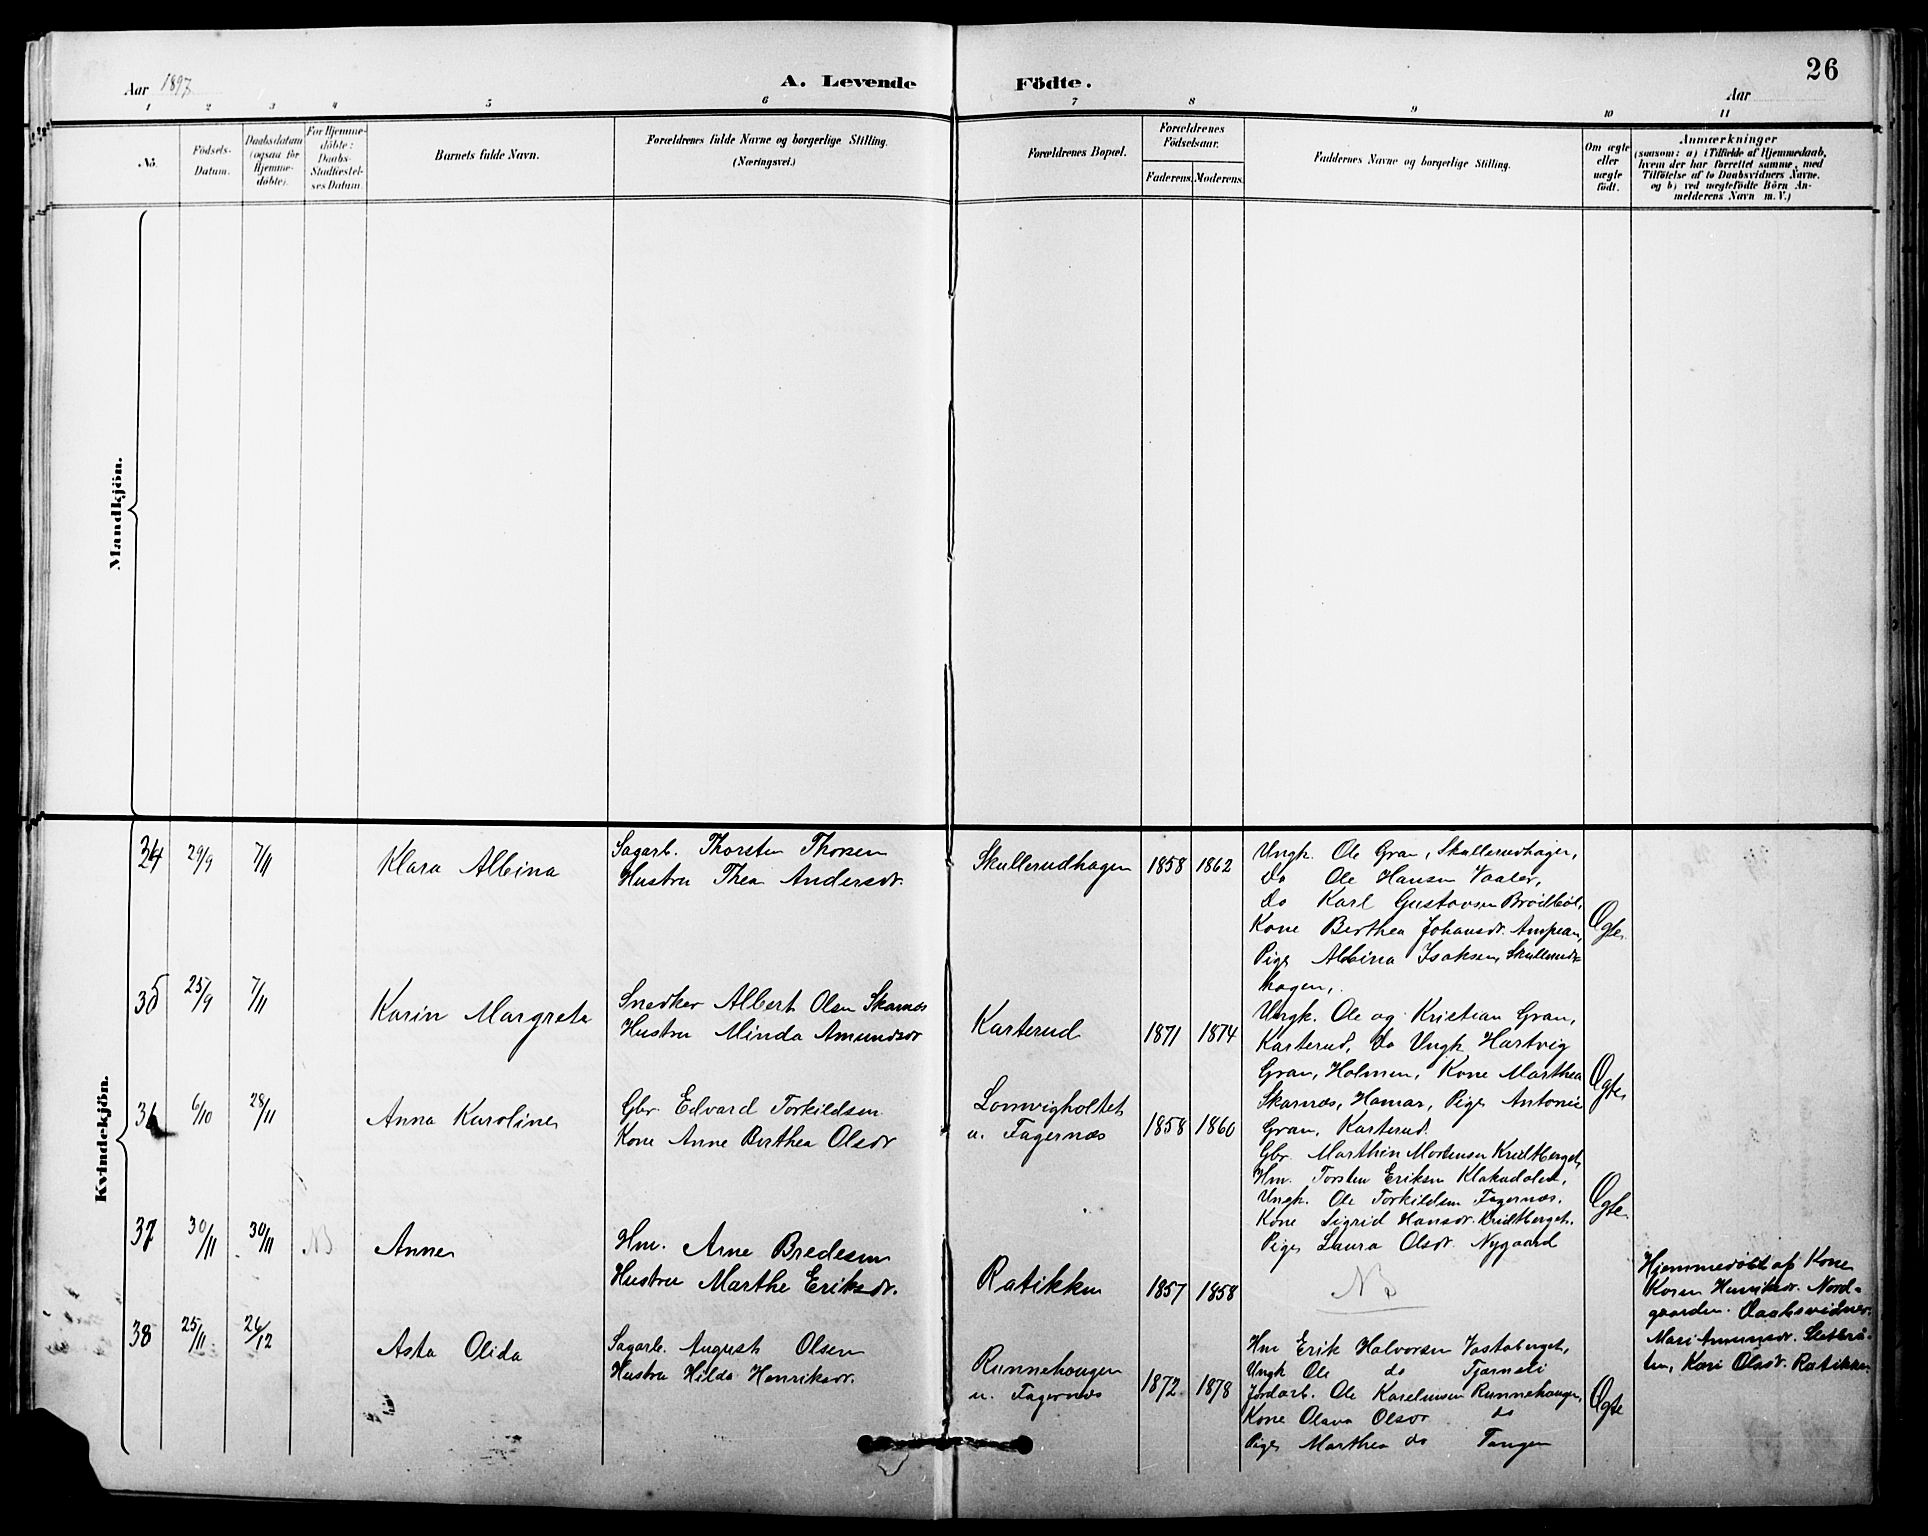 26
Aar 1897
A. Levende Födte.
Aar
1 2 3 4 5 6 7 8 9 10 11
No.
Födsels-
Datum.
Daabsdatum
(ogsaa for
Hjemme-
döbte).
For Hjemme-
döbte:
Daabs-
Stadfæstel-
ses Datum.
Barnets fulde Navn.
Forældrenes fulde Navne og borgerlige Stilling.
(Næringsvei.)
Forældrenes Bopæl.
Forældrenes
Födselsaar.
Faderens. Moderens.
Faddernes Navne og borgerlige Stilling.
Om ægte
eller
uægte
født.
Anmærkninger
(saasom: a) i Tilfælde af Hjemmedaab,
hvem der har forrettet samme, med
Tilföielse af to Daabsvidners Navne.
og b) ved uægtefödte Börn An-
melderens Navn m. V.)
Mandkjön.
Kvindekjön.
34 29/9 7/11
Klara Albina
Sagarb. Thorsten Thorsen
Hustru Thea Andersdr.
Skullerudhagen 1858 1862
Ungk. Ole Gran, Skullerudhagen,
Do Ole Hansen Vaaler,
Do Karl Gustavsen Brödbøl,
Kone Berthea Johansdr.
Pige Albina Isaksen, Skullerud-
hagen,
Ægte
35 25/9 7/11
Karin Margrete
Snedker Albert Olsen Skarnæs
Hustru Minda Amundsdr
Karterud 1871 1874
Ungk. Ole og Kristian Gran,
Karterud, do Ungk. Hartvig
Gran, Holmen, Kone Marthea
Skarnæs, Hamar, Pige Antonie
Gran, Karterud.
Ægte
36 6/10 28/11
Anna Karoline
Gbr Edvard Torkildsen
Kone Anne Berthea Olsdr
Lomvigholtet
u. Fagernæs 1858 1860
Gbr. Marthin Mortensen Kridtberget,
Hm. Torsten Eriksen Klakadalen,
Ungk. Ole Torkildsen Fagernæs,
Kone Sigrid Hansdr. Kridtberget,
Pige Laura Olsdr. Nygaard
Ægte
37 30/11 30/11 NB
Anne
Hm. Arne Bredesen
Hustru Marthe Eriksdr.
Ratikken 1857 1858
NB
Hjemmedöbt af Kone
Karen Henriksdr. Nord-
gaarden. Daabsvidner:
Mari Amundsdr.
ten, Kari Olasdr. Ratikken.
38 25/11 26/12
Asta Olida
Sagarb. August Olsen
Hustru Hilda Henriksdr.
Runnehaugen
u. Fagernæs 1872 1878
Hm Erik Halvorsen Vastaberget,
Ungk Ole do Tjærneli
Jordarb. Ole Kareliusen Runnehaugen,
Kone Olava Olsdr do
Pige Marthea do Tangen
Ægte